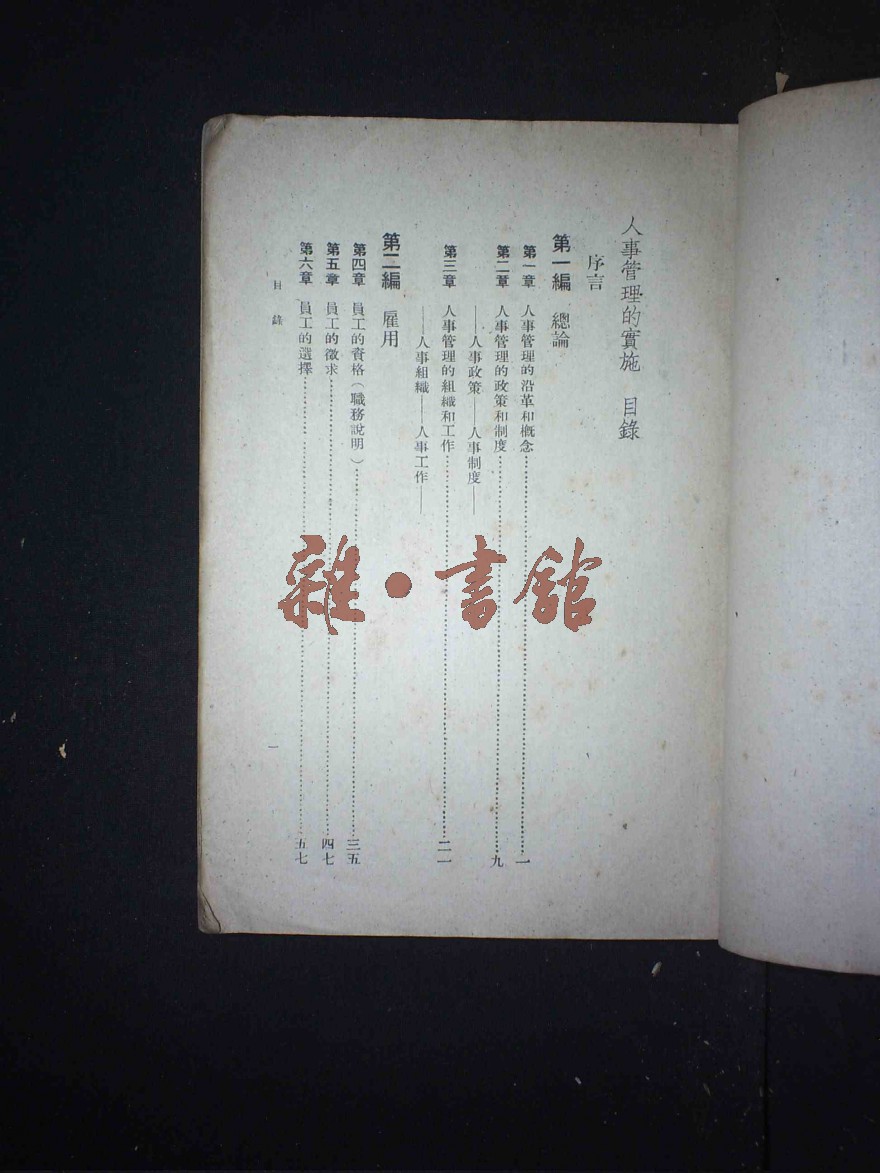 人事管理的實施　目錄
序言
第一編　總論
第一章　人事管理的沿革和概念……一
第二章　人事管理的政策和制度……九
——人事政策——人事制度——
第三章　人事管理的組織和工作……二一
——人事組織——人事工作——
第二編　雇用
第四章　員工的資格（職務說明）……三五
第五章　員工的徵求……四七
第六章　員工的選擇……五七
目錄
一
雜·書館